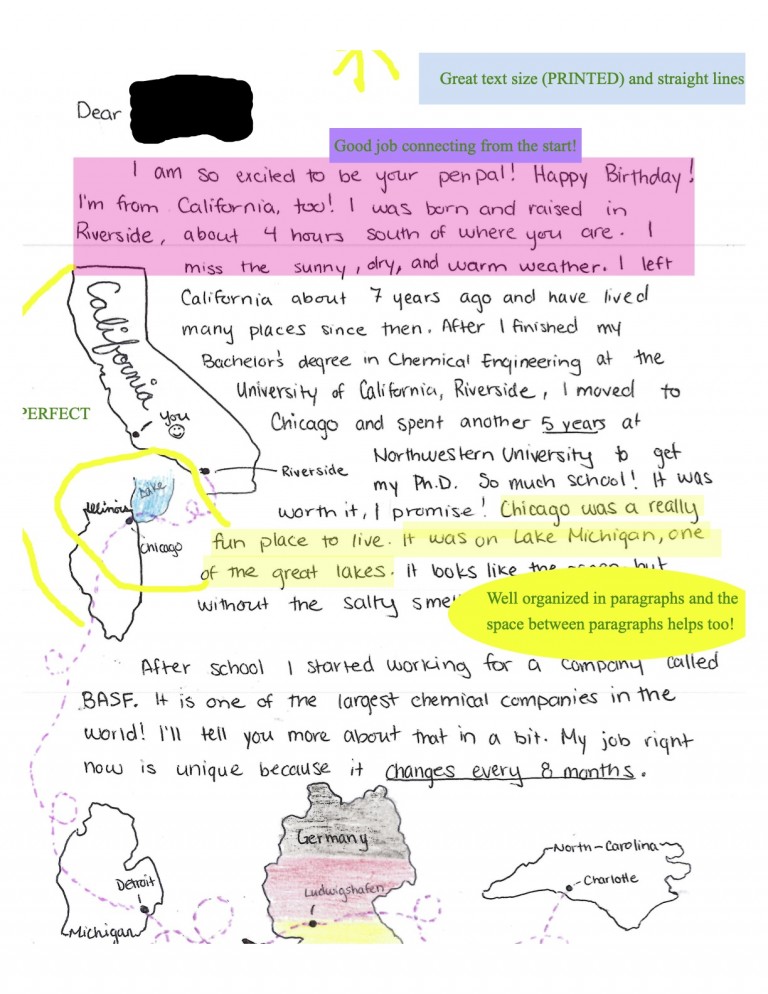 Great text size (PRINTED) and straight lines
Dear
Good job connecting from the start!
I am so excited to be your penpal! Happy Birthday!
I'm from California, too! I was born and raised in
Riverside, about 4 hours south of where you are. I
miss the sunny, dry, and warm weather. I left
California about 7 years ago and have lived
many places since then. After I finished my
Bachelor's degree in Chemical Engineering at the
University of California, Riverside, I moved to
Chicago and spent another 5 years at
Northwestern University to get
my Ph.D. So much school! It was
worth it, I promise! Chicago was a really
fun place to live. It was on Lake Michigan, one
of the great lakes. It looks like the ocean but
without the salty
California
you
PERFECT
Riverside
Lake
Illinois
Chicago
Well organized in paragraphs and the
space between paragraphs helps too!
After school I started working for a company called
BASF. It is one of the largest chemical companies in the
world! I'll tell you more about that in a bit. My job right
now is unique because it changes every 8 months.
Germany
Ludwigshafen
Detroit
Michigan
North-Carolina
Charlotte